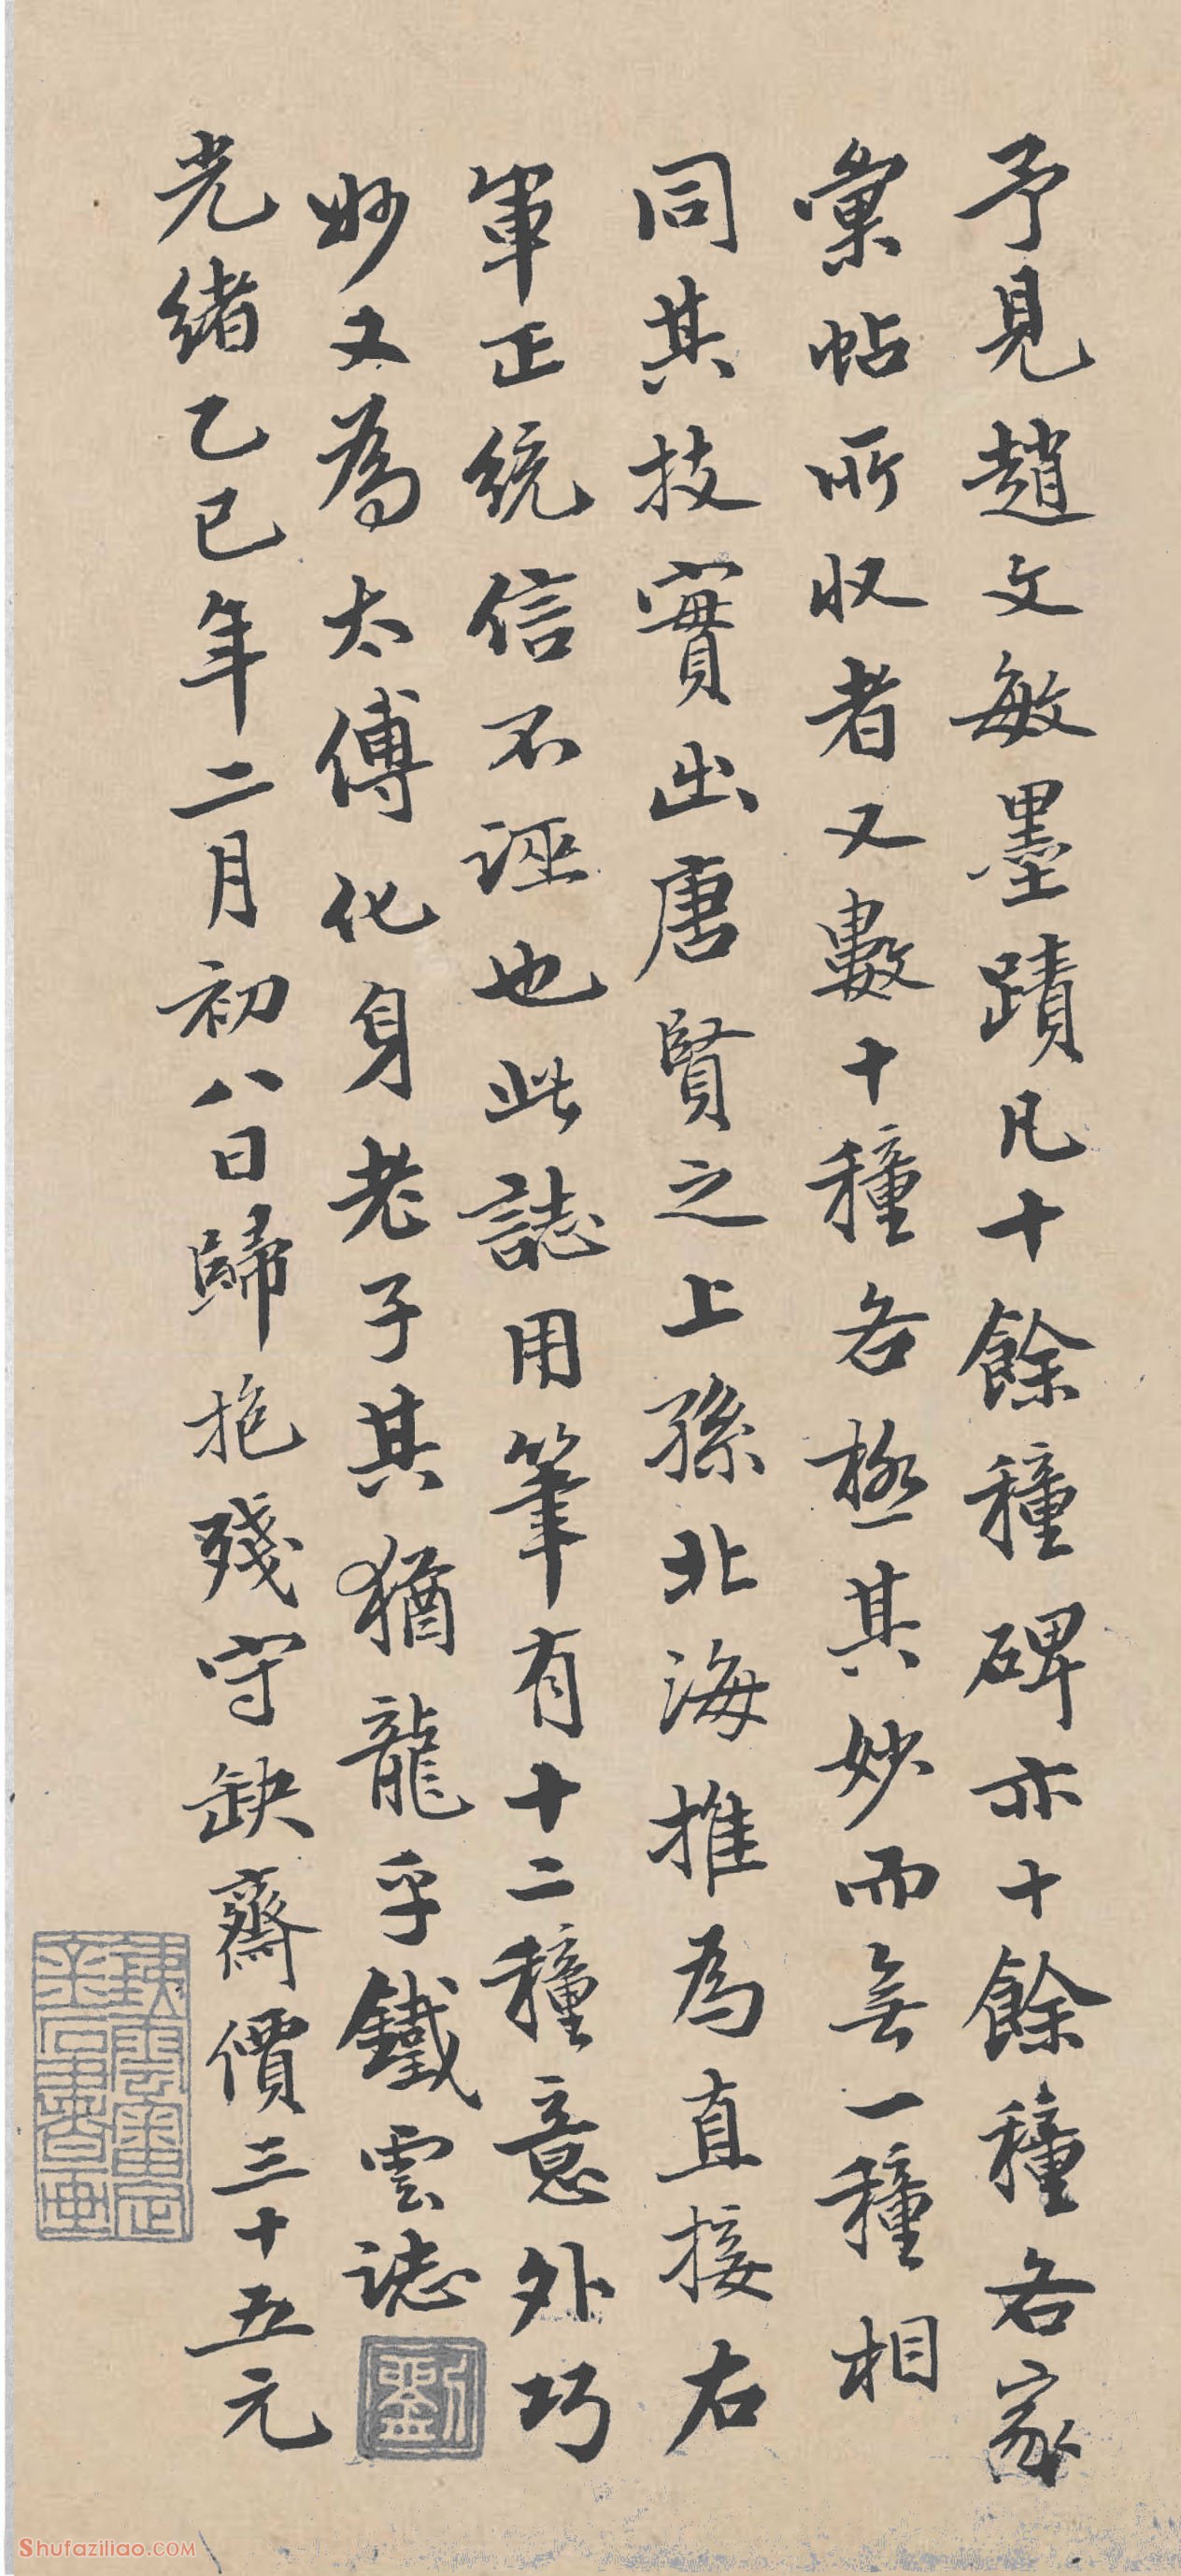 予見趙文敏墨蹟凡十餘種碑亦十餘種各家
彙帖所收者又數十種各極其妙而無一種相
同其技實出唐賢之上孫北海推為直接右
軍正統信不誣也此誌用筆有十二種意外巧
妙又為太傅化身老子其猶龍乎鐵雲誌
劉
光緒乙巳年二月初八日歸抱殘守缺齋價三十五元
鐵雲審定
金石書畫
Shufaziliao.COM